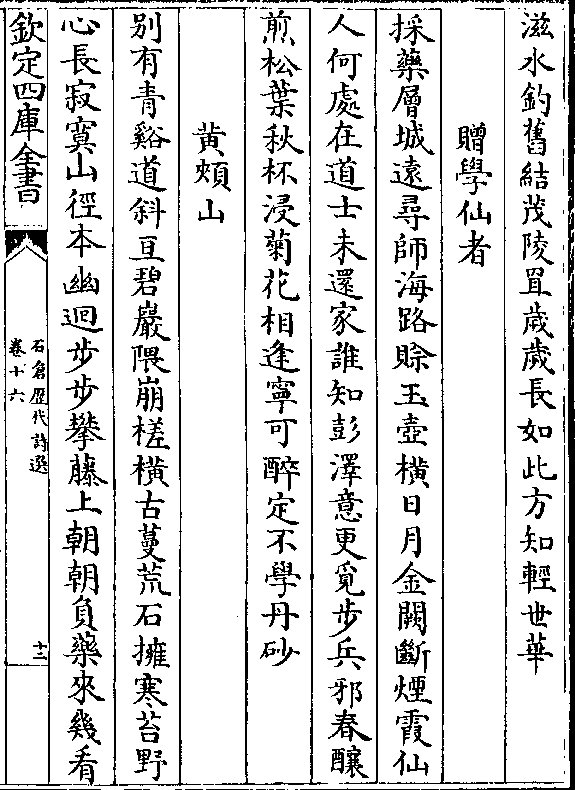 滋水釣舊結茂陵罝歲歲長如此方知輕世華
贈學仙者
採藥層城遠尋師海路賒玉壺橫日月金闕斷煙霞仙
人何處在道士未還家誰知彭澤意更覓步兵邪春釀
煎松葉秋杯浸菊花相逢寧可醉定不學丹砂
黄頰山
別有青谿道斜亘碧巖隈崩槎橫古蔓荒石擁寒苔野
心長寂寞山徑本幽迴步步攀藤上朝朝負藥來幾看
欽定四庫全書
石倉歷代詩選
卷十六
十二